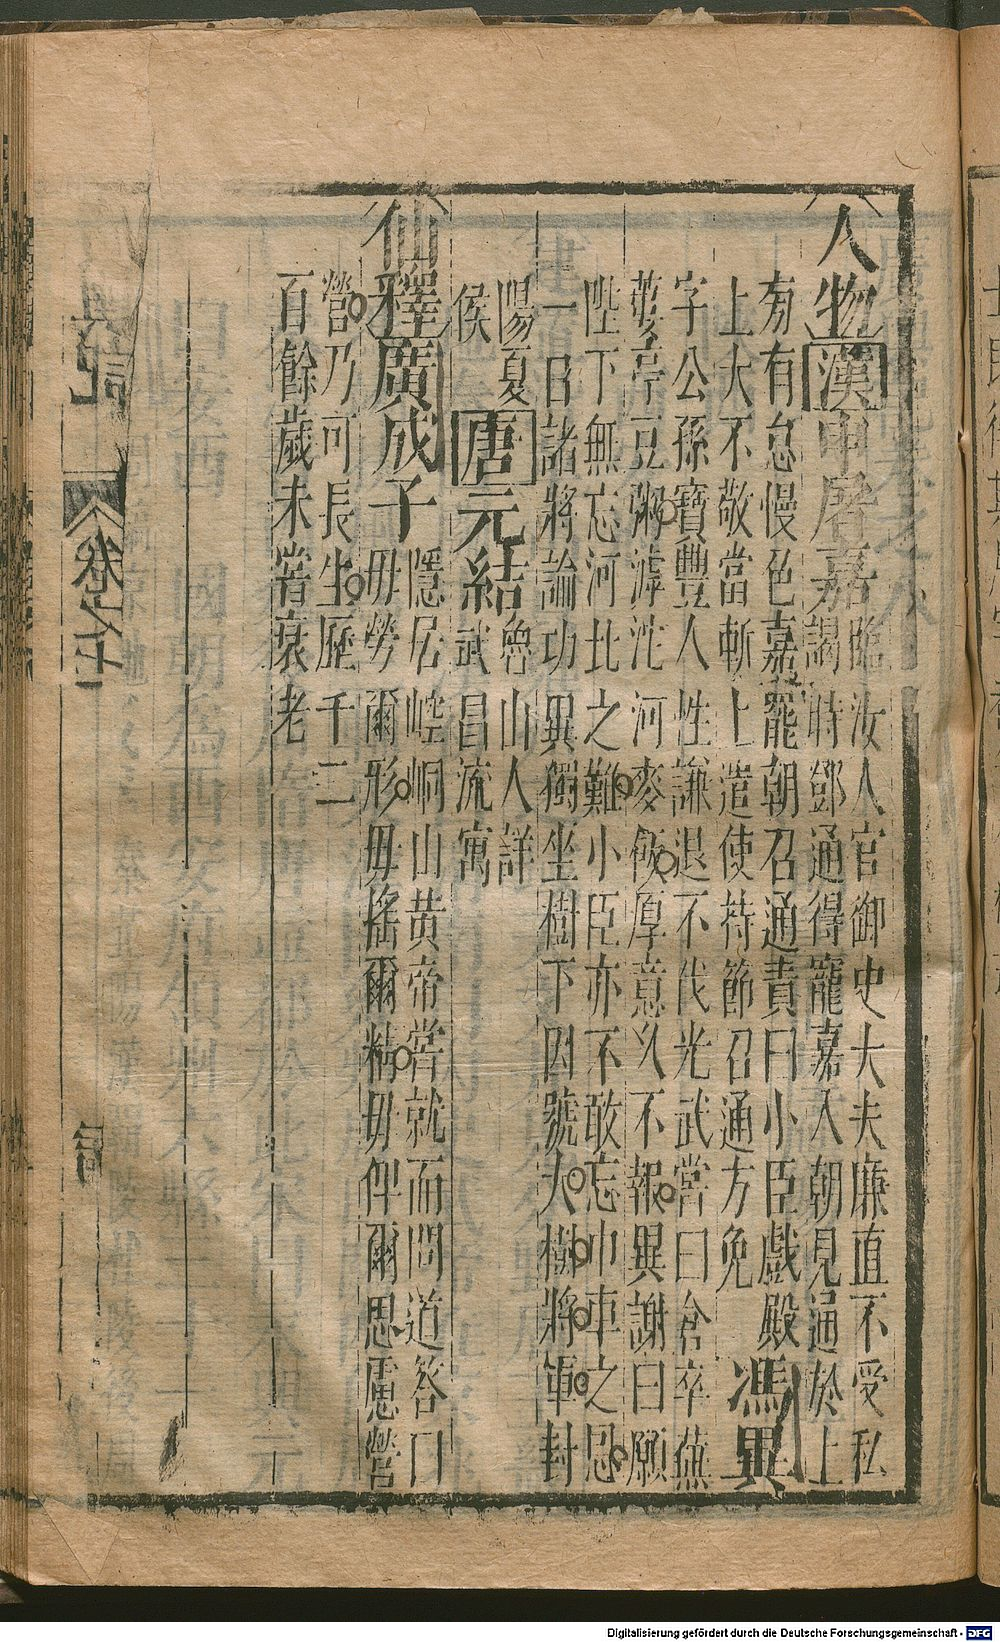 人物漢申屠嘉臨汝人官御史大夫廉直不受私
謁時鄧通得寵嘉入朝見通於上
旁有怠慢色嘉罷朝召通責曰小臣戲殿
上大不敬當斬上遣使持節召通方免馮異
字公孫寶豐人性謙退不伐光武嘗曰倉卒蕪
蔞亭豆粥滹沱河麥飯厚意久不報異謝曰願
陛下無忘河北之難小臣亦不敢忘巾車之恩
一日諸將論功異獨坐樹下因號大樹將軍封
陽夏
侯
唐元結魯山人詳
武昌流寓
仙釋廣成子隱居崆峒山黃帝嘗就而問道答曰
毋勞爾形毋搖爾精毋俾爾思慮營
營乃可長生歷千二
百餘歲未嘗衰老
輿記
卷之七
Digitalisierung gefördert durch die Deutsche Forschungsgemeinschaft - DFG